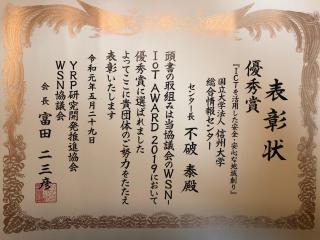 表彰状
優秀賞
『ICTを活用した安全・安心な地域創り』
国立大学法人 信州大学
総合情報センター
センター長 不破 泰殿
頭書の取組みは当協議会のWSN-
IoT AWARD 2019において
優秀賞に選ばれました
よってここに貴団体のご努力をたたえ
表彰いたします
令和元年五月二十九日
YRP研究開発推進協会
WSN協議会
会長 富田 二三彦